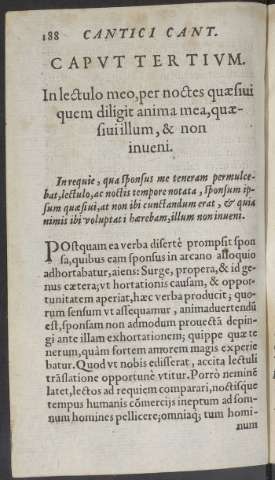 188 CANTICI CANT.
CAPVT TERTIVM.
In lectulo meo, per noctes quæsiui
quem diligit anima mea, quæ-
siui illum, & non
inueni.
In requie, qua sponsus me teneram permulce-
bat, lectulo, ac noctis tempore notata, sponsum ip-
sum quæsiui, at non ibi cunctandum erat, & quia
nimis ibi voluptati hærebam, illum non inueni.
POstquam ea verba disertè prompsit spon
sa, quibus eam sponsus in arcano alloquio
adhortabatur, aiens: Surge, propera, & id ge-
nus cætera; vt hortationis causam, & oppor-
tunitatem aperiat, hæc verba producit; quo-
rum sensum vt assequamur, animaduertendū
est, sponsam non admodum prouectā depin-
gi ante illam exhortationem; quippe quæ te
nerum, quàm fortem amorem magis experie
batur. Quod vt nobis edisserat, accita lectuli
trāslatione opportunè vtitur. Porrò neminē
latet, lectos ad requiem comparari, noctisque
tempus humanis cōmercijs ineptum ad som-
num homines pellicere; omniaq; tum homi-
num